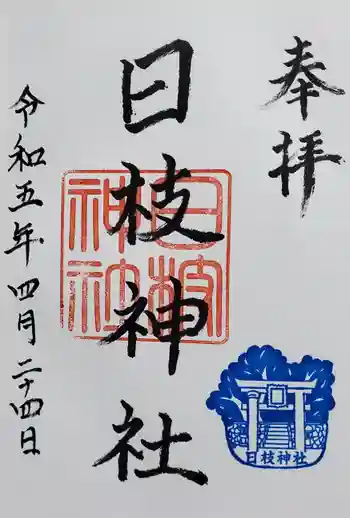 奉拝
日枝神社
日枝神社
令和五年 四月二十四日
日枝神社